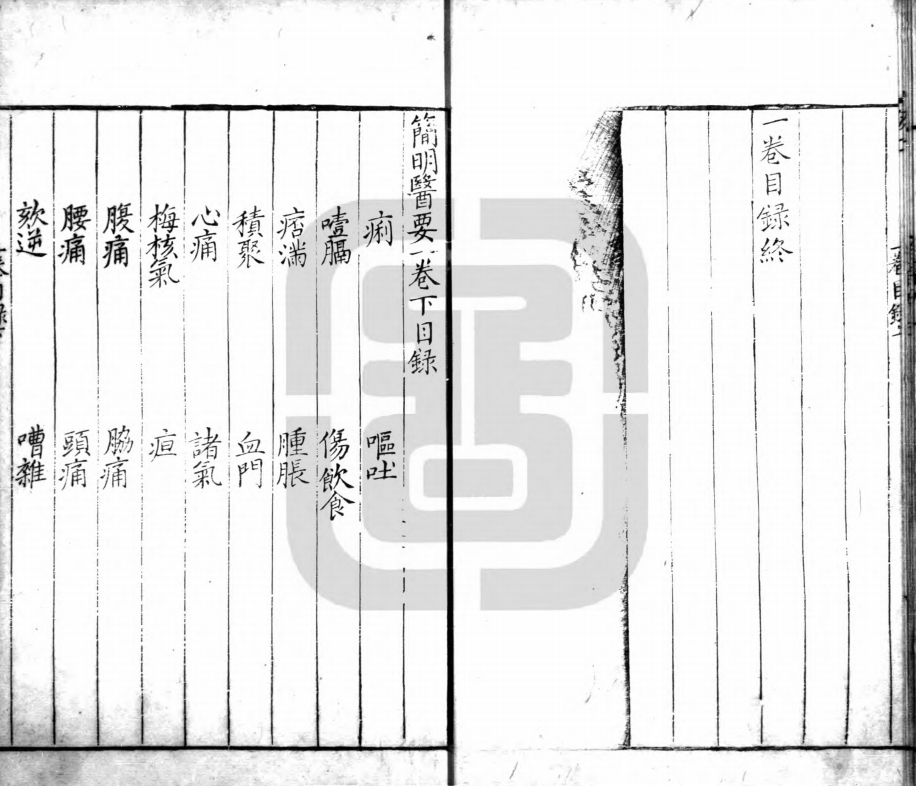 一卷目録終
簡明醫要一卷下目録
痢 嘔吐
噎膈 傷飲食
痞滿 腫脹
積聚 血門
心痛 諸氣
梅核氣 疸
腹痛 脇痛
腰痛 頭痛
欬逆 嘈雜